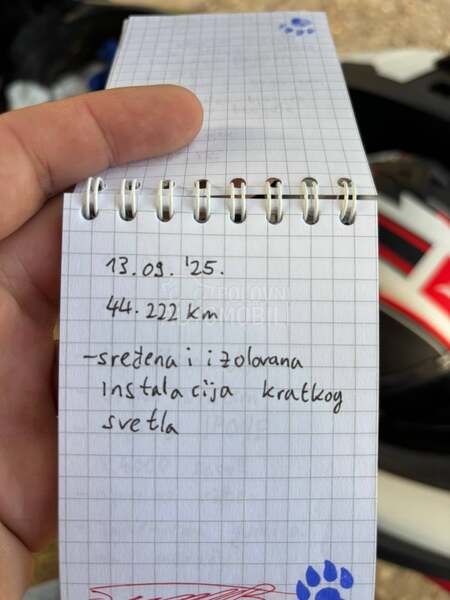 13.09.'25.
44.222 km
-sređena i izolovana
instalacija kratkog
svetla